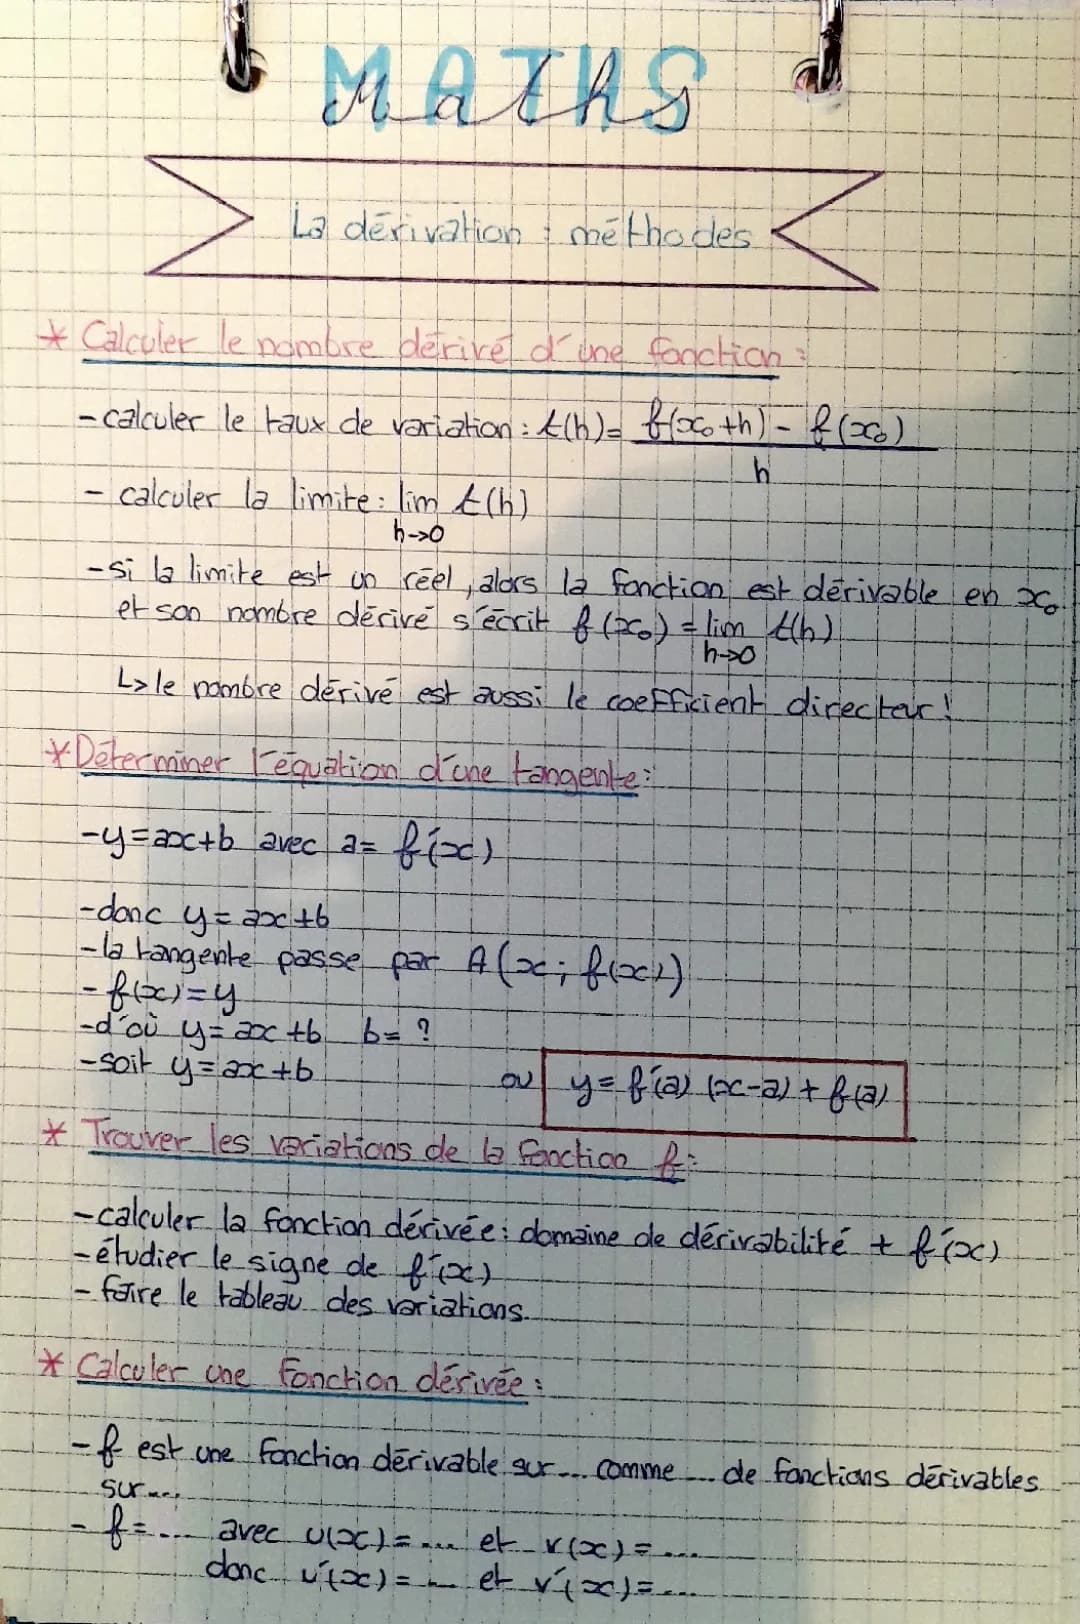 MATHS
Maths
La dérivation : méthodes
* Calculer le nombre dérivé d'une fonction :
- calculer le taux de variation : t(h) = f(x₀+h) - f(x₀)
h
- calculer la limite : lim t(h)
h->0
- si la limite est un réel, alors la fonction est dérivable en x₀
et son nombre dérivé s'écrit f(x₀) = lim t(h)
h->0
L> le nombre dérivé est aussi le coefficient directeur !
* Déterminer l'équation d'une tangente :
- y = ax+b avec a = f'(x)
- donc y = ax+b
- la tangente passe par A(x ; f(x))
- f(x) = y
- d'où y = ax+b b = ?
- soit y = ax+b ou y = f'(a) (x-a) + f(a)
* Trouver les variations de la fonction f :
- calculer la fonction dérivée : domaine de dérivabilité + f'(x)
- étudier le signe de f'(x)
- faire le tableau des variations.
* Calculer une fonction dérivée :
- f est une fonction dérivable sur ... comme ... de fonctions dérivables
sur ...
- f = .... avec u(x) = ... et v(x) = ...
donc u'(x) = ... et v'(x) = ...